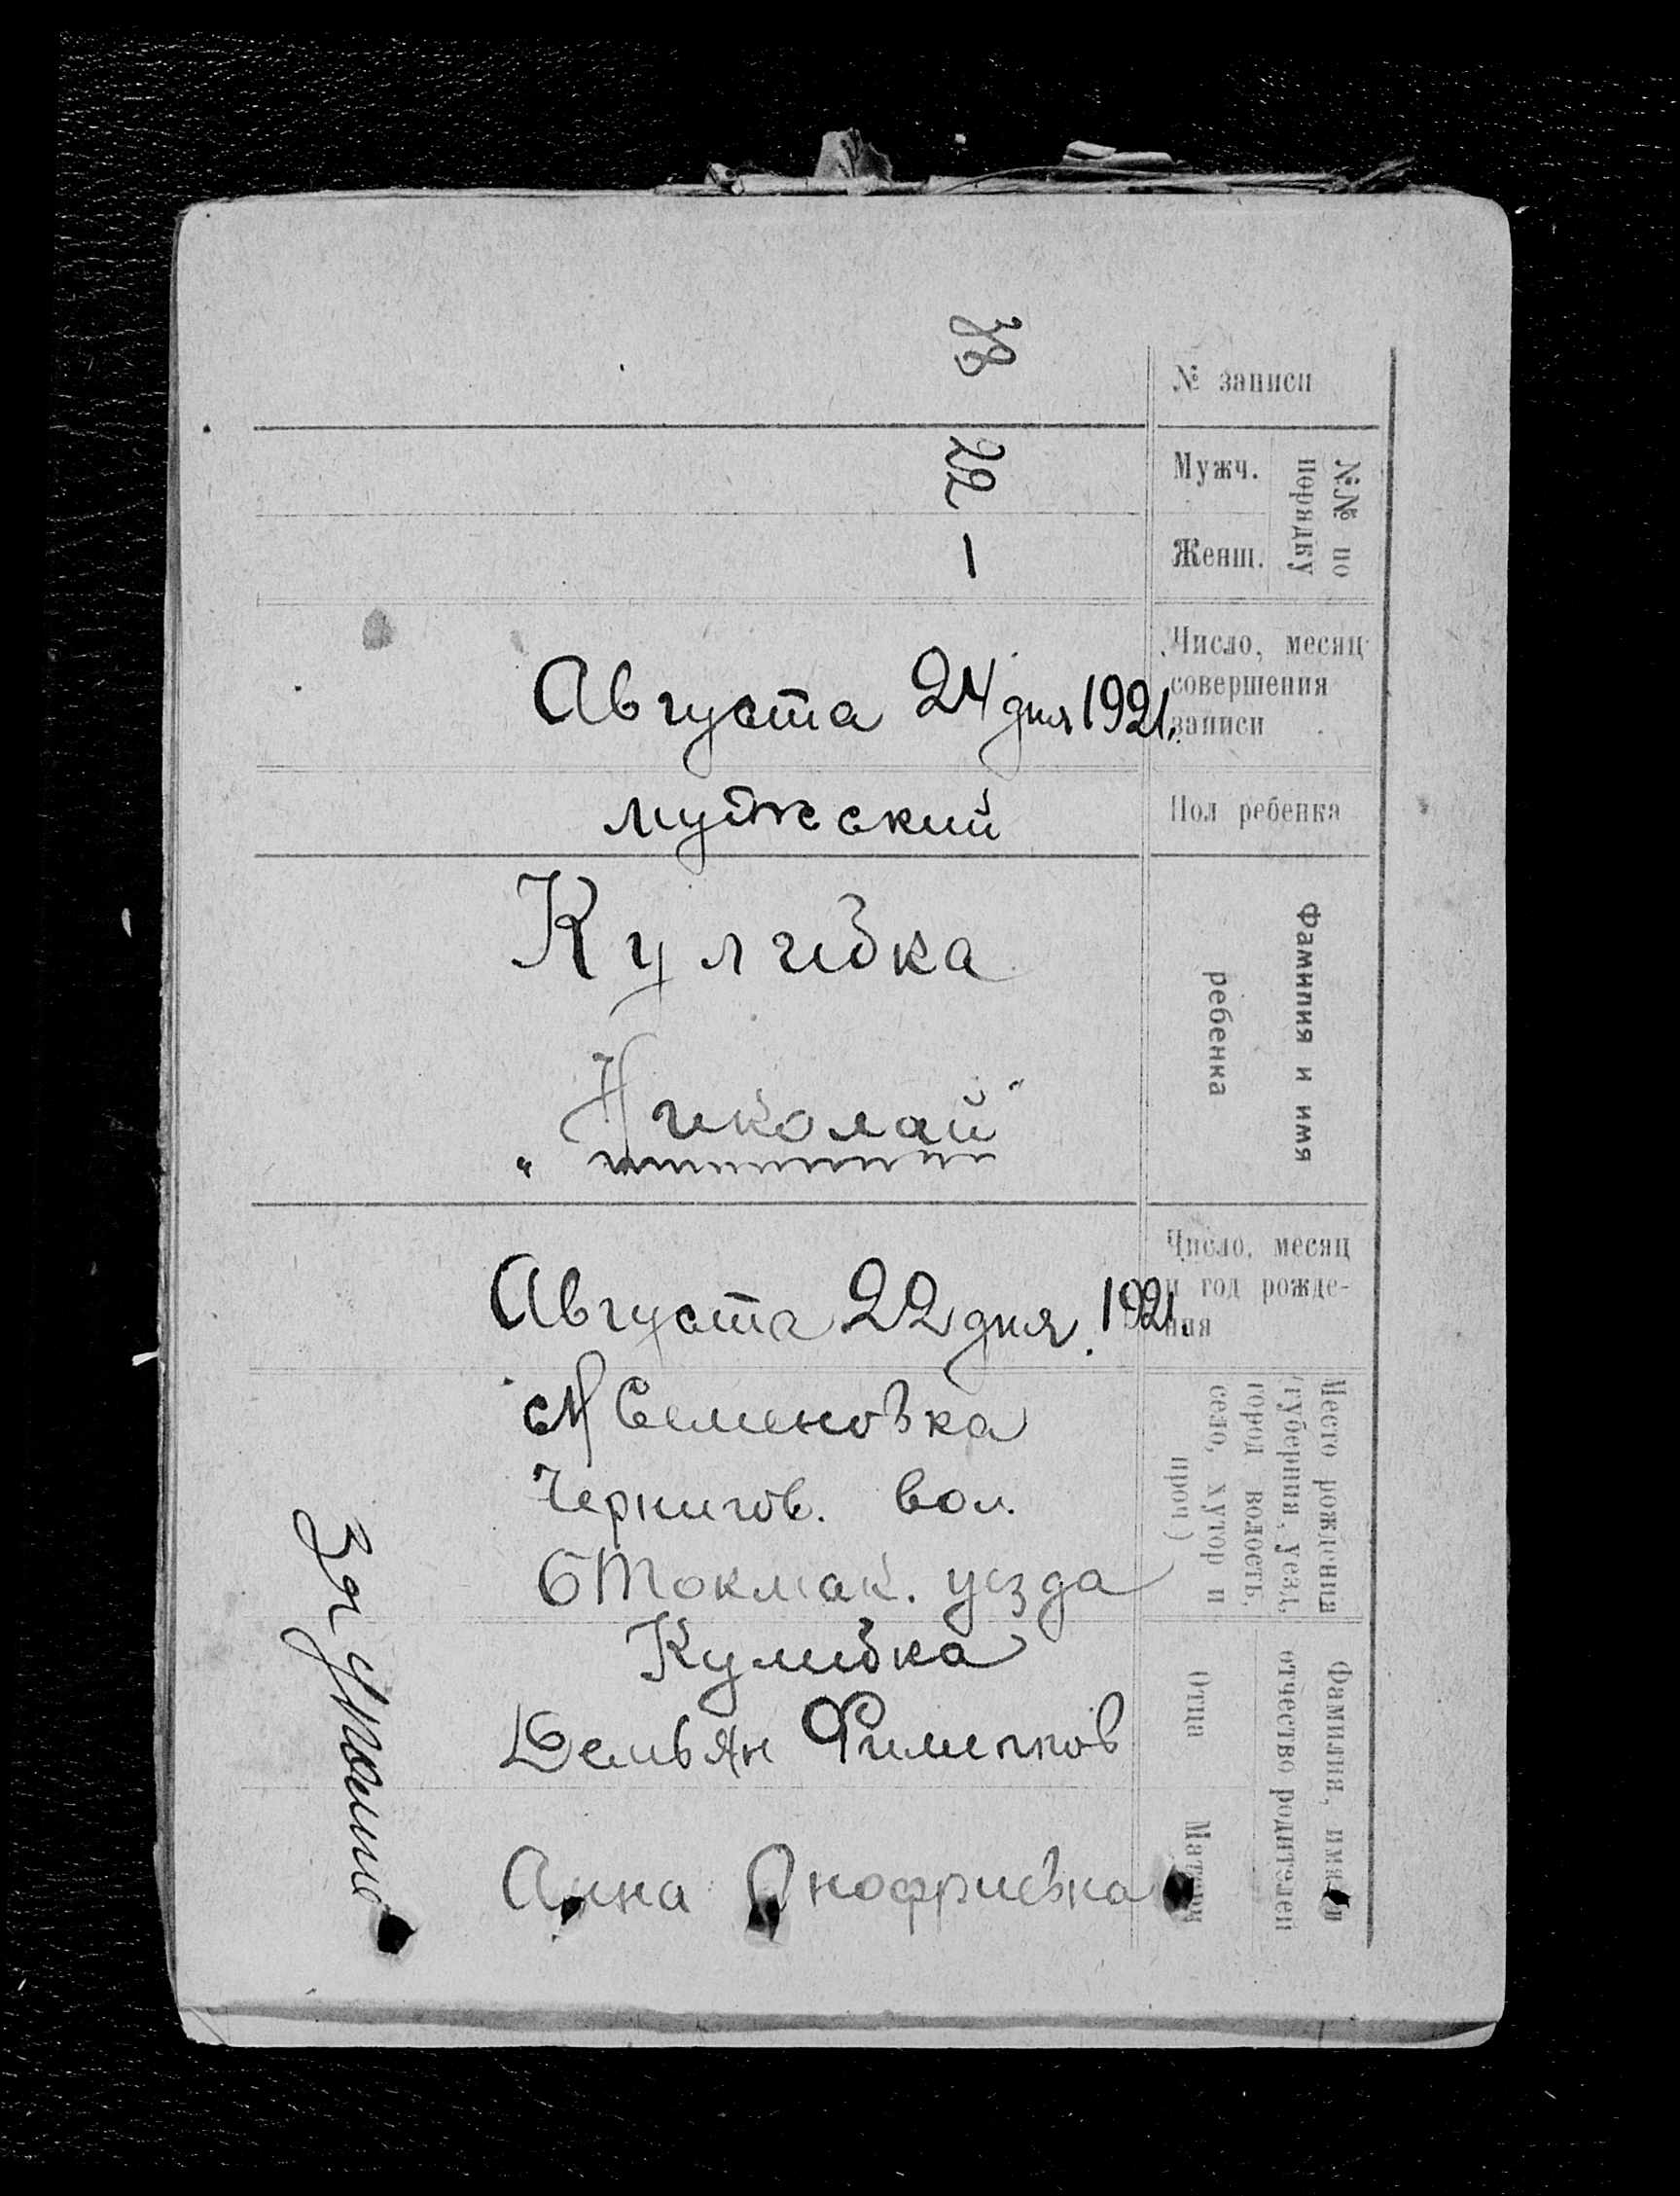 № записи
38
№№ по
порядку
Мужч.
22
Женщ.
Число, месяц
совершения
записи
Августа 24 дня 1921.
Пол ребенка
мужской
Фамилия и имя
ребенка
Кулибка
"Николай"
Число, месяц
и год рожде-
ния
Августа 22 дня 1921
Место рождения
(губерния, уезд,
город волость,
село, хутор и
проч)
Семеновка
Чернигов. вол.
БТокмак. уезда
Фамилия, имя и
отчество родителей
Отца
Кулибка
Демьян
Матери
Анна Онофриевна